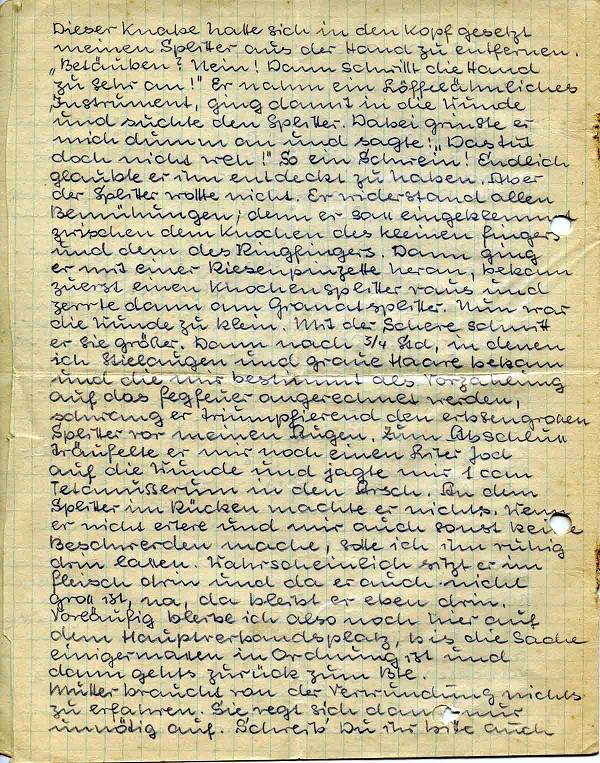 Dieser Knabe hatte sich in den Kopf gesetzt
meinen Splitter aus der Hand zu entfernen.
„Betäuben? Nein! Dann schwillt die Hand
zu sehr an!" Er nahm ein Löffelähnliches
Instrument, ging damit in die Wunde
und suchte den Splitter. Dabei grinste er
mich dumm an und sagte: „Das tut
doch nicht weh!" So ein Schwein! Endlich
glaubte er ihn entdeckt zu haben. Aber
der Splitter wollte nicht. Er widerstand allen
Bemühungen; denn er saß eingeklemmt
zwischen dem Knochen des kleinen Fingers
und dem des Ringfingers. Dann ging
er mit einer Riesenpinzette heran, bekam
zuerst einen Knochensplitter raus und
zerrte dann am Granatsplitter. Nun war
die Wunde zu klein. Mit der Schere schnitt
er sie größer. Dann nach 3/4 Std, in denen
ich Stielaugen und graue Haare bekam
und die mir bestimmt als Vorzahlung
auf das Fegfeuer angerechnet werden,
schwang er triumpfierend den erbsengroßen
Splitter vor meinen Augen. Zum Abschluß
träufelte er mir noch einen Liter Jod
auf die Wunde und jagte mir 1 ccm
Tetanußserum in den Arsch. An dem
Splitter im Rücken machte er nichts. Wenn
er nicht eitere und mir auch sonst keine
Beschwerden mache, solle ich ihn ruhig
drin lassen. Wahrscheinlich sitzt er im
Fleisch drin und da er auch nicht
groß ist, na, da bleibt er eben drin.
Vorläufig bleibe ich also noch hier auf
dem Hauptverbandsplatz, bis die Sache
einigermaßen in Ordnung ist und
dann gehts zurück zum Btl.
Mutter braucht von der Verwundung nichts
zu erfahren. Sie regt sich dann nur
unnötig auf. Schreib' Du ihr bitte auch